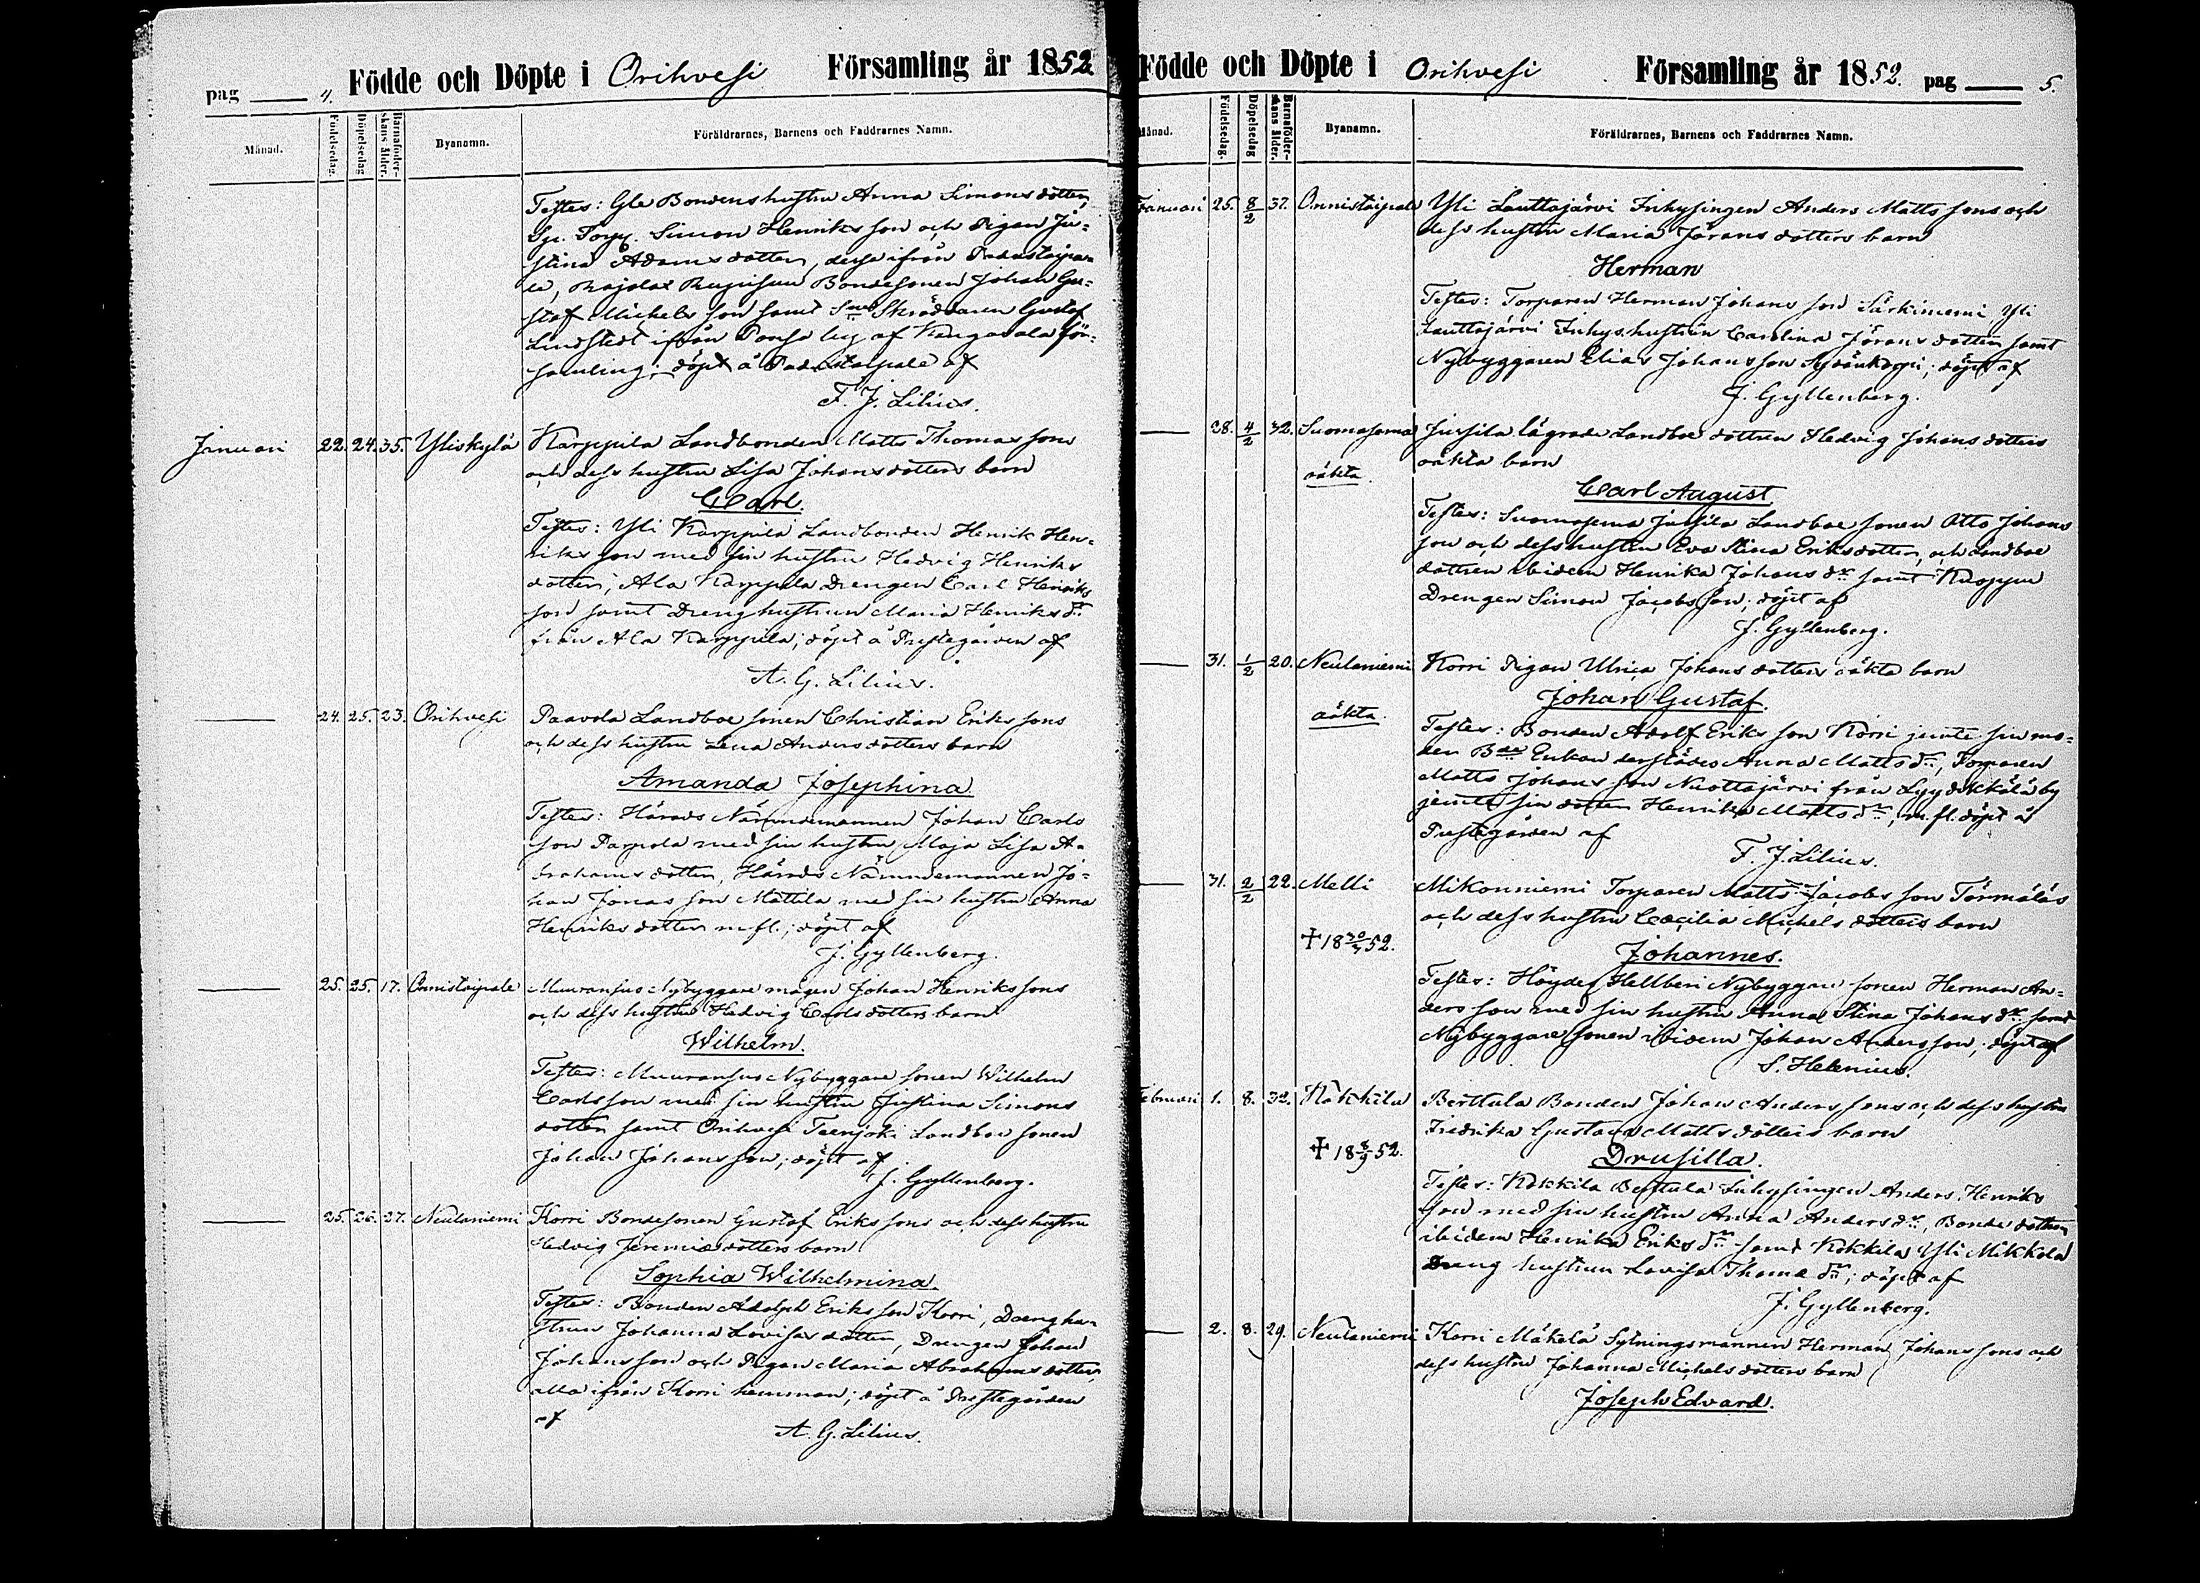 pag 4. Födde och Döpte i Orihvesi Församling år 1852.
Månad. Födelsedag. Döpelsedag Barnaföderskans ålder. Byanamn. Föräldrarnes, Barnens och Faddrarnes Namn.
Testes: Gla Bondens hustru Anna Simons dotter,
Torp. Simon Henriks son och Pigan Ju-
stina Adams dotter, desse ifrån
Bondesonen Johan Gu-
staf Michels son samt Skräddaren Gustaf
Lindstedt ifrån by af Kangasala för-
samling; döpt å af
F. J. Lilius.
Januari 22. 24. 35. Yliskylä Karppila Landbonden Matts Thomas sons
och dess hustru Lisa Johans dotters barn
Carl.
Testes: Yli Karppila Landbonden Henrik Hen-
riks son med sin hustru Hedvig Henriks
dotter, Ala Karppila Drengen Carl Henriks
son samt Dreng hustrun Maria Henriks dr
från Ala Karppila; döpt å Prestegården af
A. G. Lilius.
24. 25. 23. Orihvesi Paavola Landboe sonen Christian Eriks sons
och dess hustru Lena Anders dotters barn
Amanda Josephina.
Testes: Härads Nämndemannen Johan Carls
son Parpola med sin hustru Maja Lisa A-
brahams dotter, Härads Nämndemannen Jo-
han Jonas son Mattila med sin hustru Anna
Henriks dotter m.fl.; döpt af
J. Gyllenberg.
25. 25. 17. Onnistaipale Muuransuu Nybyggare mågen Johan Henriks sons
och dess hustru Hedvig Carls dotters barn
Wilhelm.
Testes: Muuransuu Nybyggare sonen Wilhelm
Carls son med sin hustru Justina Simons
dotter samt Orihvesi Teerijoki Landboe sonen
Johan Johans son; döpt af
J. Gyllenberg.
25. 26. 27. Neulaniemi Korri Bondesonen Gustaf Eriks sons och dess hustru
Hedvig Jeremiæ dotters barn
Sophia Wilhelmina.
Testes: Bonden Adolph Eriks son Korri, Dreng hu-
strun Johanna Lovisas dotter, Drengen Johan
Johans son och Pigan Maria Abrahams dotter,
alla ifrån Korri hemman; döpt å Prestegården
af
A. G. Lilius.
Födde och Döpte i Orihvesi Församling år 1852. pag 5.
Månad. Födelsedag. Döpelsedag Barnaföderskans ålder. Byanamn. Föräldrarnes, Barnens och Faddrarnes Namn.
Januari 25. 8/2 37. Onnistaipale Yli Lauttajärvi Inhysingen Anders Matts sons och
dess hustru Maria Görans dotters barn
Herman
Testes: Torparen Herman Johans son Särkiniemi Yli
Lauttajärvi Inhys. hustrun Carolina Görans dotter samt
Nybyggaren Elias Johans son; döpt af
J. Gyllenberg.
28. 4/2 32. Suomasema Jussila lägrade Landboe dottren Hedvig Johans dotters
oäkta oäkta barn
Carl August.
Testes: Suomasema Jussila Landboe sonen Otto Johans
son och dess hustru Eva Stina Eriks dotter, och Landboe
dottren ibidem Henrika Johans dr samt
Drengen Simon Jacobs son; döpt af
J. Gyllenberg.
31. 1/2 20. Neulaniemi Korri Pigan Ulrica Johans dotters oäkta barn
Johan Gustaf.
oäkta. Testes: Bonden Adolf Eriks son Korri jemte sin mo-
der Enkan derstädes Anna Matts dr, Torparen
Matts Johans son Nuottajärvi från Lyydikkälä by
jemte sin dotter Henrika Matts dr, m.fl. döpt å
Prestegården af
F. J. Lilius.
31. 2/2 22. Melli Mikonniemi Torparen Matts Jacobs son Törmäläs
och dess hustru Cæcilia Michels dotters barn
+ 18 30/4 52. Johannes.
Testes: Nybyggare sonen Herman An-
ders son med sin hustru Anna Stina Johans dr samt
Nybyggare sonen ibidem Johan Anders son; döpt af
S. Helenius.
Februari 1. 8. 32. Kokkila Berttula Bonden Johan Anders sons och dess hustru
Fredrika Gustava Matts dotters barn
+ 18 8/9 52. Drusilla.
Testes: Kokkila Berttula Inhysingen Anders Henriks
son med sin hustru Anna Anders dr, Bonde dottren
ibidem Henrika Eriks dr samt Kokkila Yli Mikkola
Dreng hustrun Lovisa Thomæ dr; döpt af
J. Gyllenberg.
2. 8. 29. Neulaniemi Korri Mäkelä Sytningsmannen Herman Johans sons och
dess hustru Johanna Michels dotters barn
Joseph Edvard.